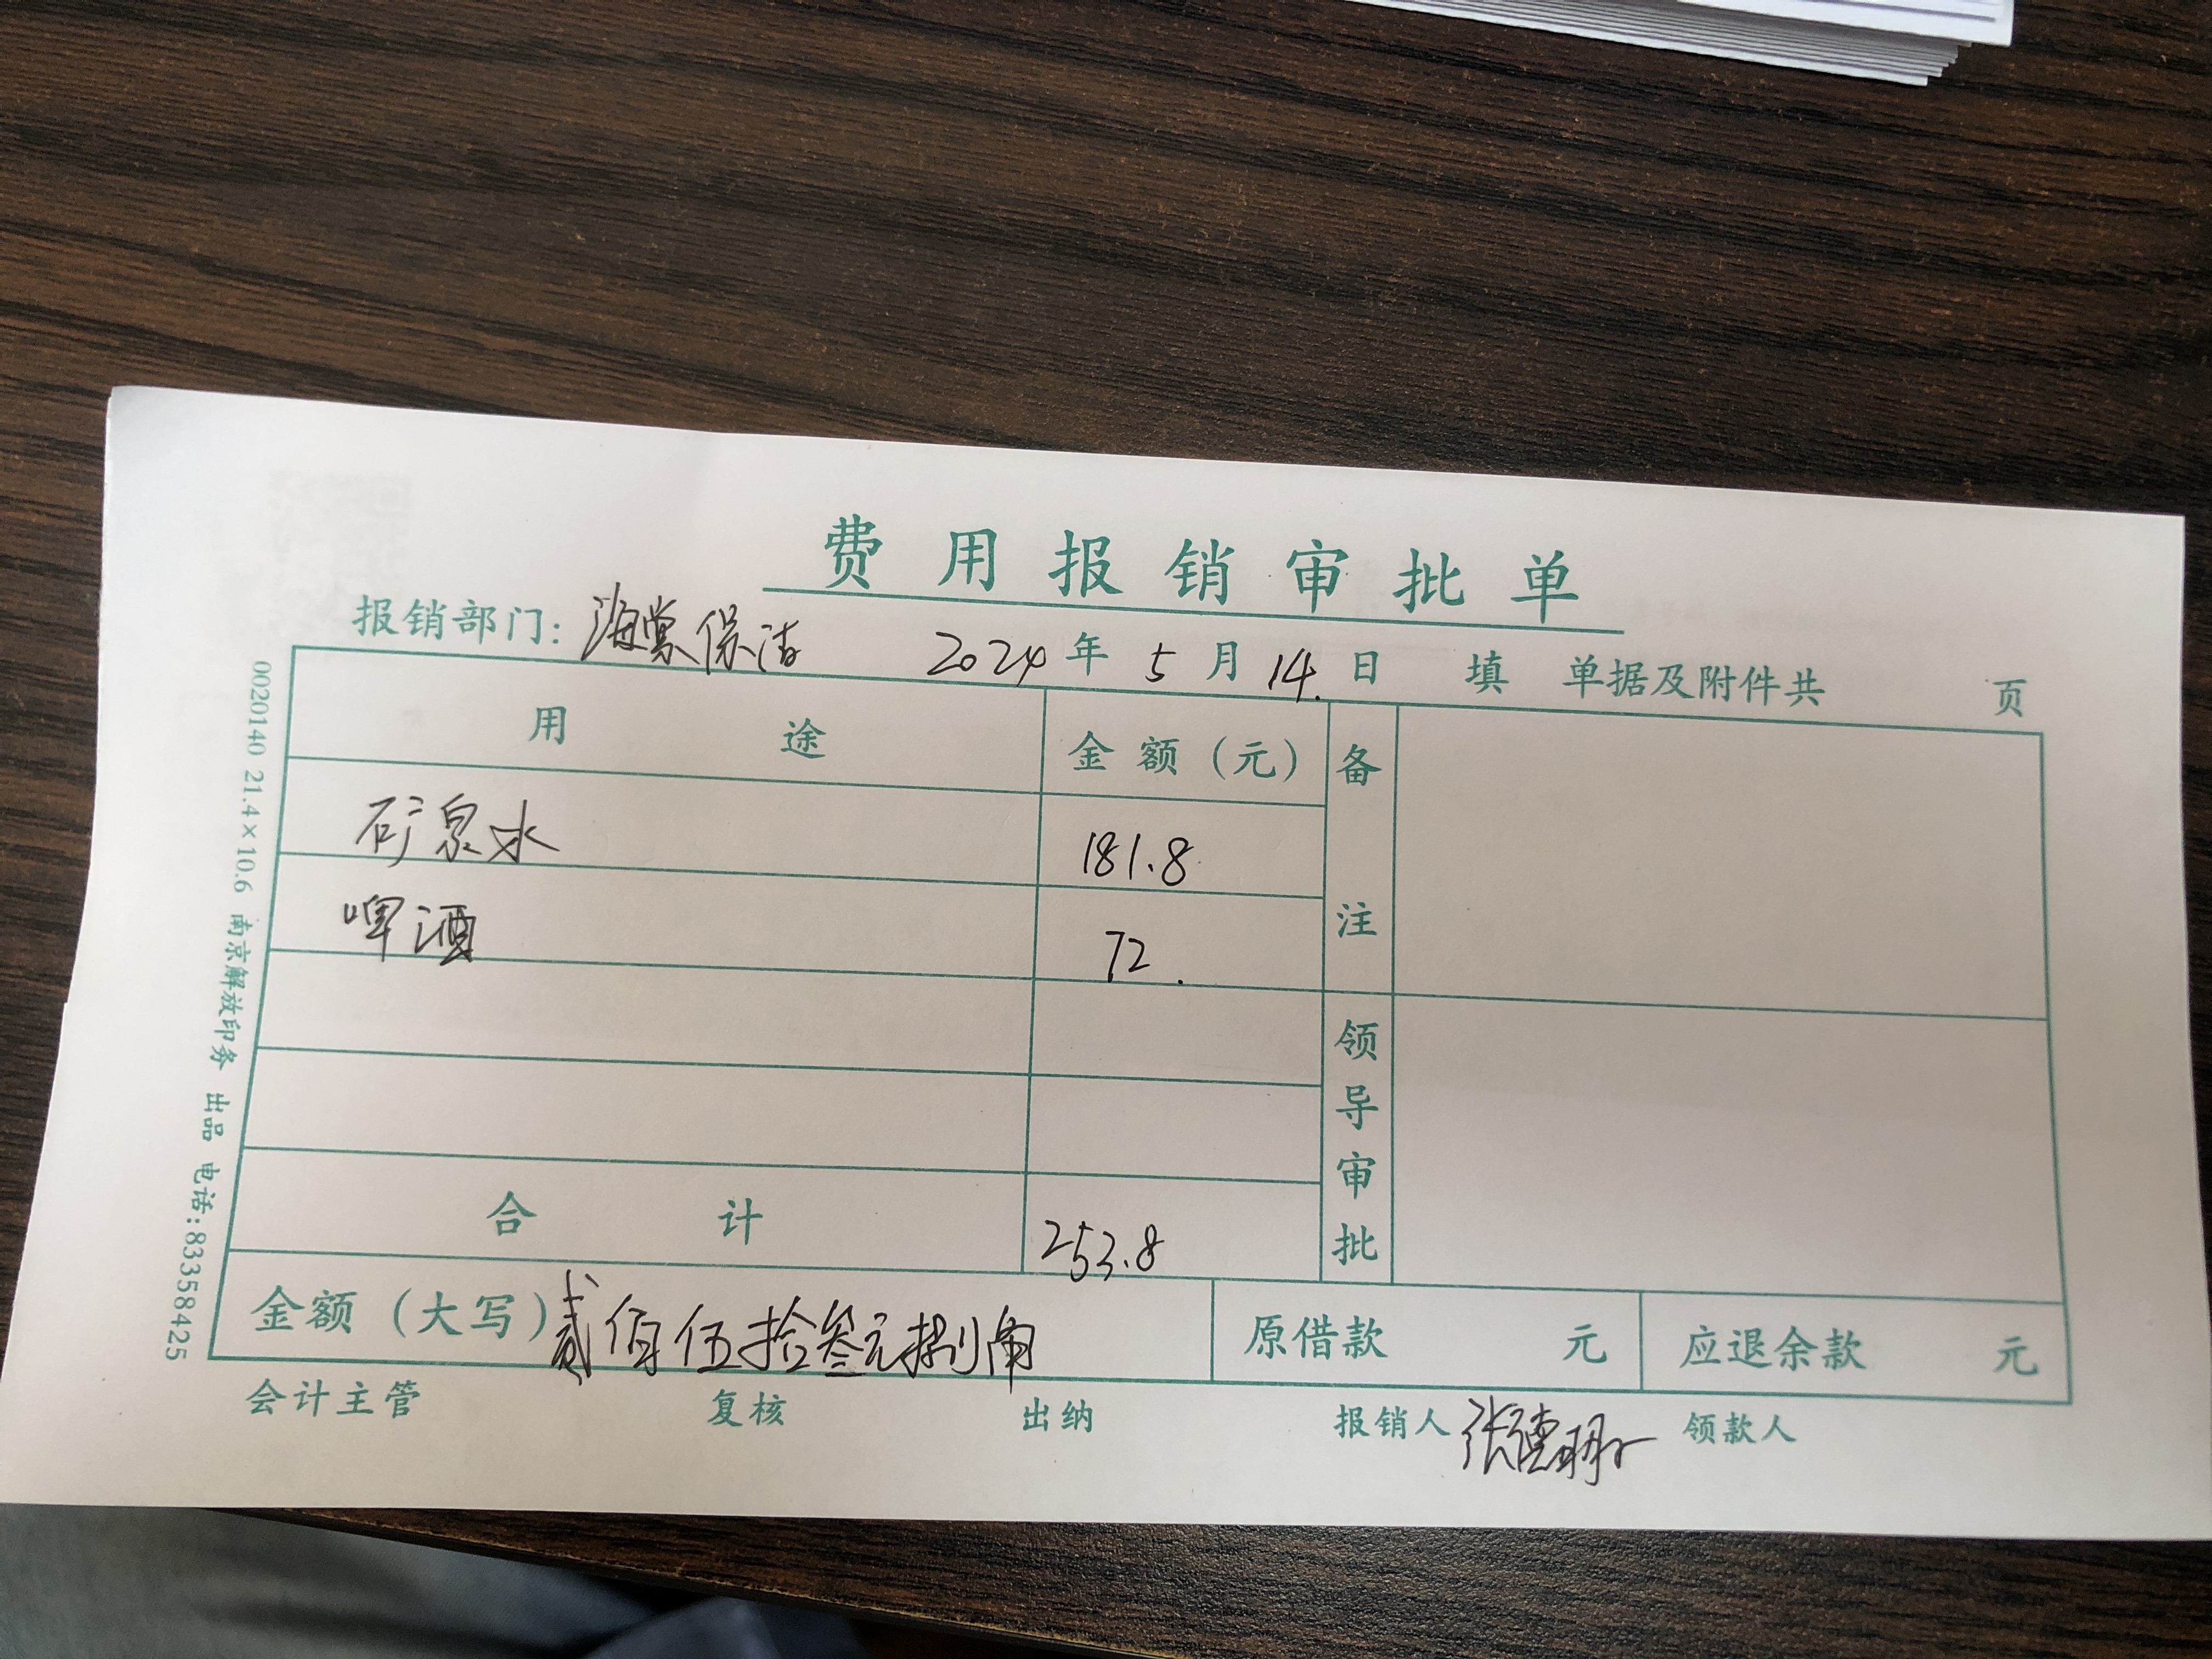 费用报销审批单
报销部门：海棠保洁 2024年5月14.日 填 单据及附件共 页
用途 金额（元） 备注
矿泉水 181.8
啤酒 72.
领导审批
合计 253.8
金额（大写）贰佰伍拾叁元捌角 原借款 元 应退余款 元
会计主管 复核 出纳 报销人 张德明 领款人
0020140 21.4×10.6 南京解放印务 出品 电话:83358425